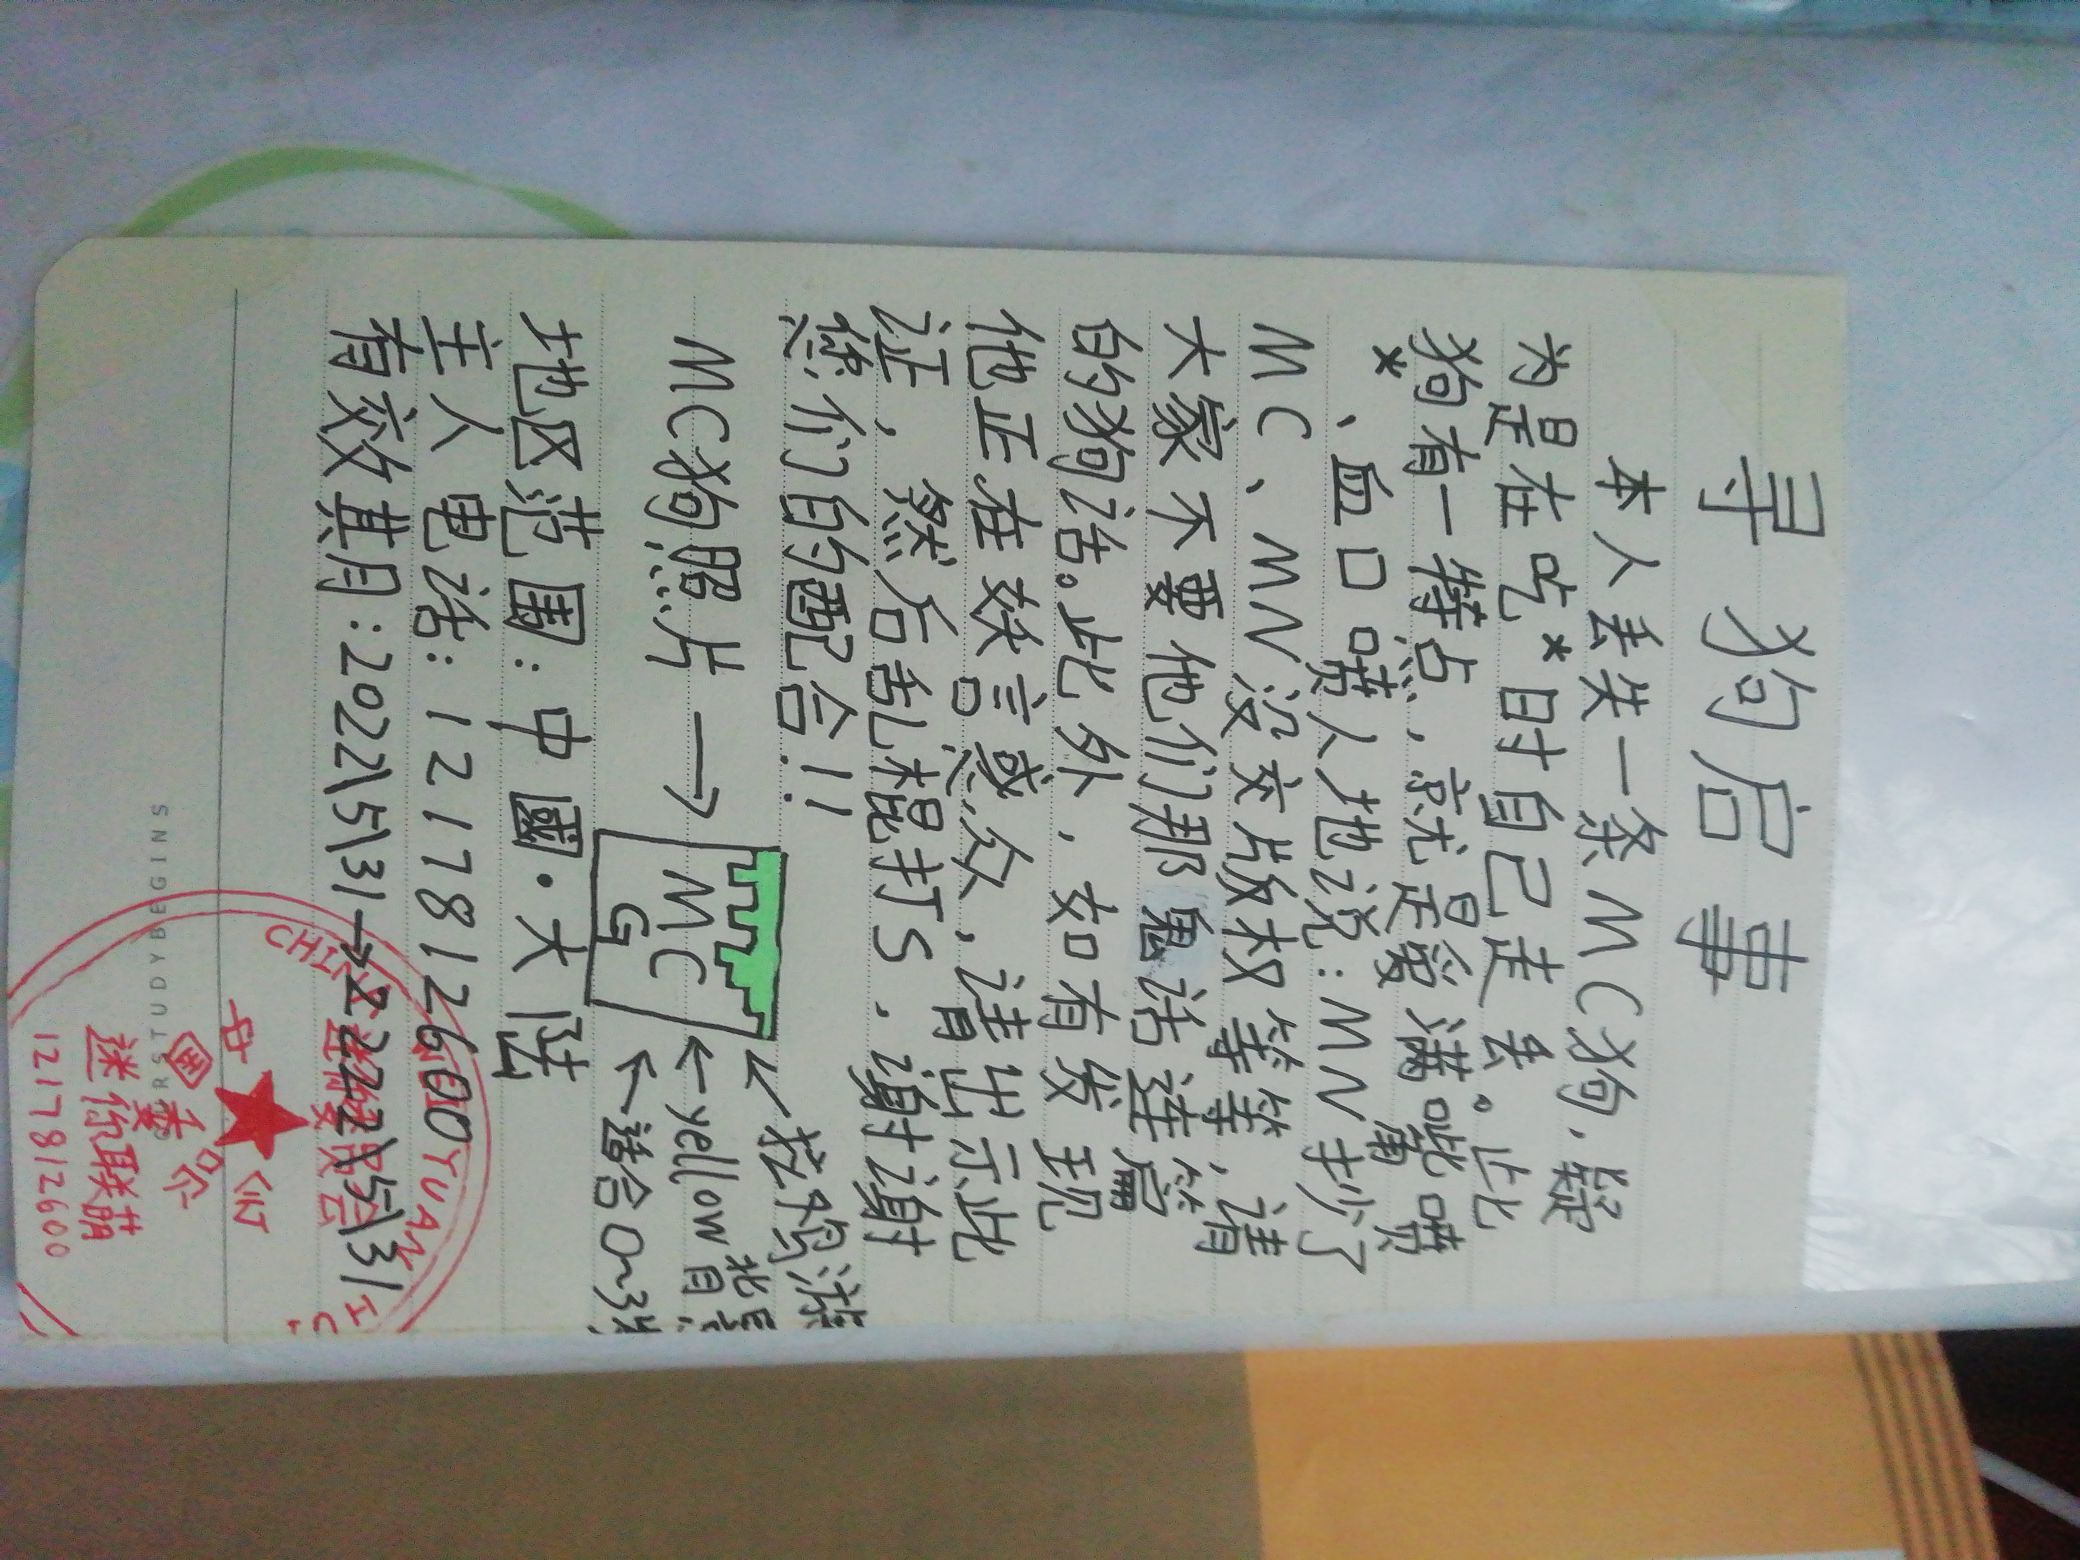 寻狗启事
本人丢失一条MC狗,疑
为是在吃*时自己走丢。此
狗有一特点,就是爱满嘴喷
*、血口喷人地说:MN抄了
MC、MN没交版权等等,请
大家不要他们那鬼话连篇
的狗话。此外,如有发现
他正在妖言惑众,请出示此
证,然后乱棍打S.谢谢
您们的配合!!
MC狗照片→
MC
G
←yellow背景
地区范围:中國·大陆
主人电话:1217812600
有效其月:2022\5\31→2222\5\31
中国
迷你联萌
1217812600
OURSTUDYBEGINS